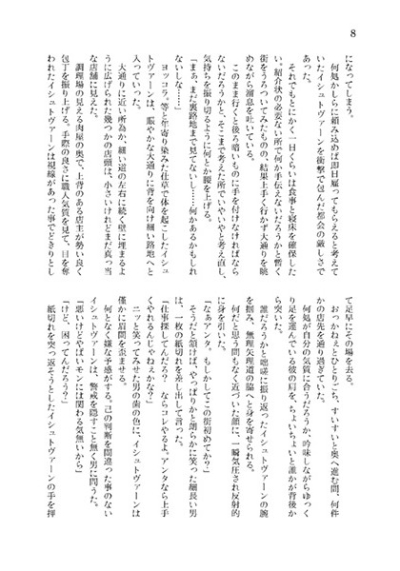 8
になってしまう。
何処かしらに頼み込めば即日雇ってもらえると考えて
いたイシュトヴァーンを衝撃で包んだ都会の厳しさで
あった。
それでもとにかく一日くらいは食事と寝床を確保した
い、紹介状の必要ない所で何か手伝えないだろうかと暫く
街をうろついてみたものの、結果上手く行かず大通りを眺
めながら溜息を吐いている。
このまま行くと後ろ暗いものに手を付けなければなら
ないだろうかと、そこまで考えた所でいやいやと考え直し、
気持ちを振り切るように何とか腰を上げる。
「まぁ、まだ裏路地まで見てないし……何かあるかもしれ
ないしな……」
ヨッコラ、等と年寄り染みた仕草で体を起こしたイシュ
トヴァーンは、賑やかな大通りに背を向け細い路地へと
入っていった。
大通りに近い所為か、細い道の左右に続く壁に埋まるよ
うに広げられた幾つかの店舗は、小さいけれどまだ真っ当
な店舗に見えた。
調理場の見える肉屋の奥で、上背のある店主が勢い良く
包丁を振り上げる。手際の良さに職人気質を見て、目を奪
われたイシュトヴァーンは視線があった事でどきりとし
て足早にその場を去る。
おっかねぇとひとりごち、すいすいと奥へ進む間、何件
かの店先を通り過ぎていた。
何処が自分の気質に合うだろうか、吟味しながらゆっく
り足を運んでいる彼の肩を、ちょいちょいと誰かが背後か
ら突いた。
誰だろうかと咄嗟に振り返ったイシュトヴァーンの腕
を掴み、無理矢理道の脇へと身を寄せられる。
何だと思う間もなく近づいた顔に、一瞬気圧され反射的
に身を引いた。
「なぁアンタ、もしかしてこの街初めてか？」
そうだと頷けば、やっぱりかと朗らかに笑った細長い男
は、一枚の紙切れを差し出して言った。
「仕事探してんだろ？　ならコレやるよ、アンタなら上手
くやれるんじゃねぇかな？」
ニッと笑ってみせた男の歯の色に、イシュトヴァーンは
僅かに眉間を歪ませる。
何となく嫌な予感がする。己の判断を間違った事のない
イシュトヴァーンは、警戒を隠すこと無く男に問うた。
「悪いけどやばいモンには関わる気無いから」
「けど、困ってんだろう？」
紙切れを突っ返そうとしたイシュトヴァーンの手を押